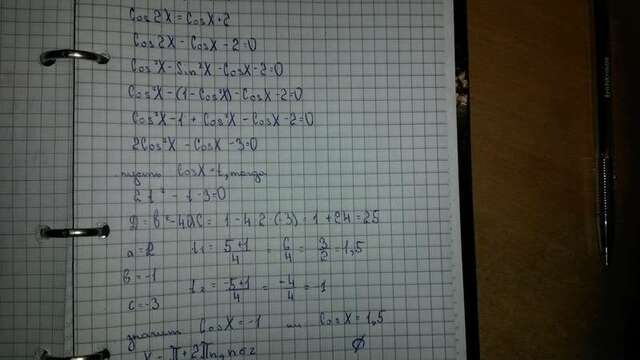 Cos 2X = CosX + 2
Cos 2X - CosX - 2 = 0
Cos²X - Sin²X - CosX - 2 = 0
Cos²X - (1 - Cos²X) - CosX - 2 = 0
Cos²X - 1 + Cos²X - CosX - 2 = 0
2Cos²X - CosX - 3 = 0
пусть CosX = t, тогда
2t² - t - 3 = 0
D = b² - 4ac = 1 - 4·2·(-3) = 1 + 24 = 25
a = 2 t₁ = 5+1/4 = 6/4 = 3/2 = 1,5
b = -1
t₂ = -5+1/4 = -4/4 = -1
c = -3
значит CosX = -1 или CosX = 1,5
X = π + 2πn, n∈z ∅